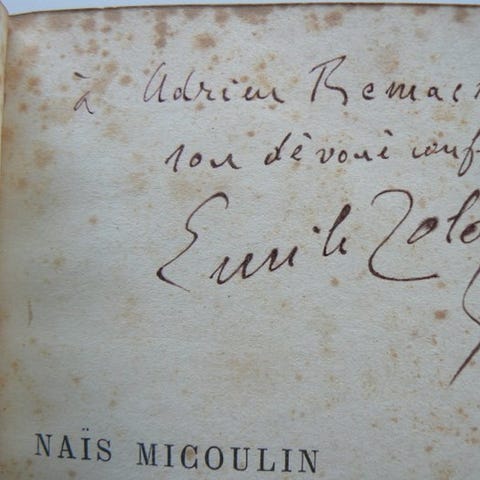 à Adrien Remac
son dévoué conf
Emile Zola
NAÏS MICOULIN